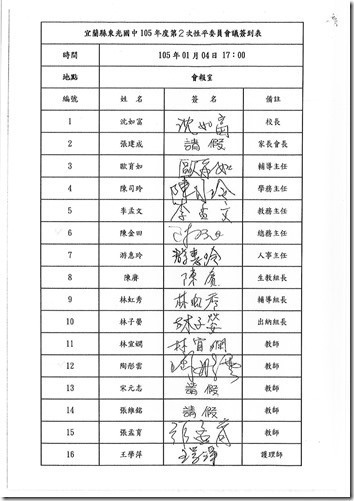 宜蘭縣東光國中 105 年度第 2 次性平委員會議簽到表
時間 105 年 01 月 04 日 17：00
地點 會報室
編號 姓 名 簽 名 備註
1 沈如富 沈如富 校長
2 張建成 請假 家長會長
3 歐育如 歐育如 輔導主任
4 陳司玲 陳司玲 學務主任
5 李孟文 李孟文 教務主任
6 陳金田 總務主任
7 游惠玲 游惠玲 人事主任
8 陳賡 陳賡 生教組長
9 林虹秀 林虹秀 輔導組長
10 林子馨 出納組長
11 林宜嫻 林宜嫻 教師
12 陶彤雲 教師
13 宋元志 請假 教師
14 張維銘 請假 教師
15 張孟育 張孟育 教師
16 王學萍 護理師